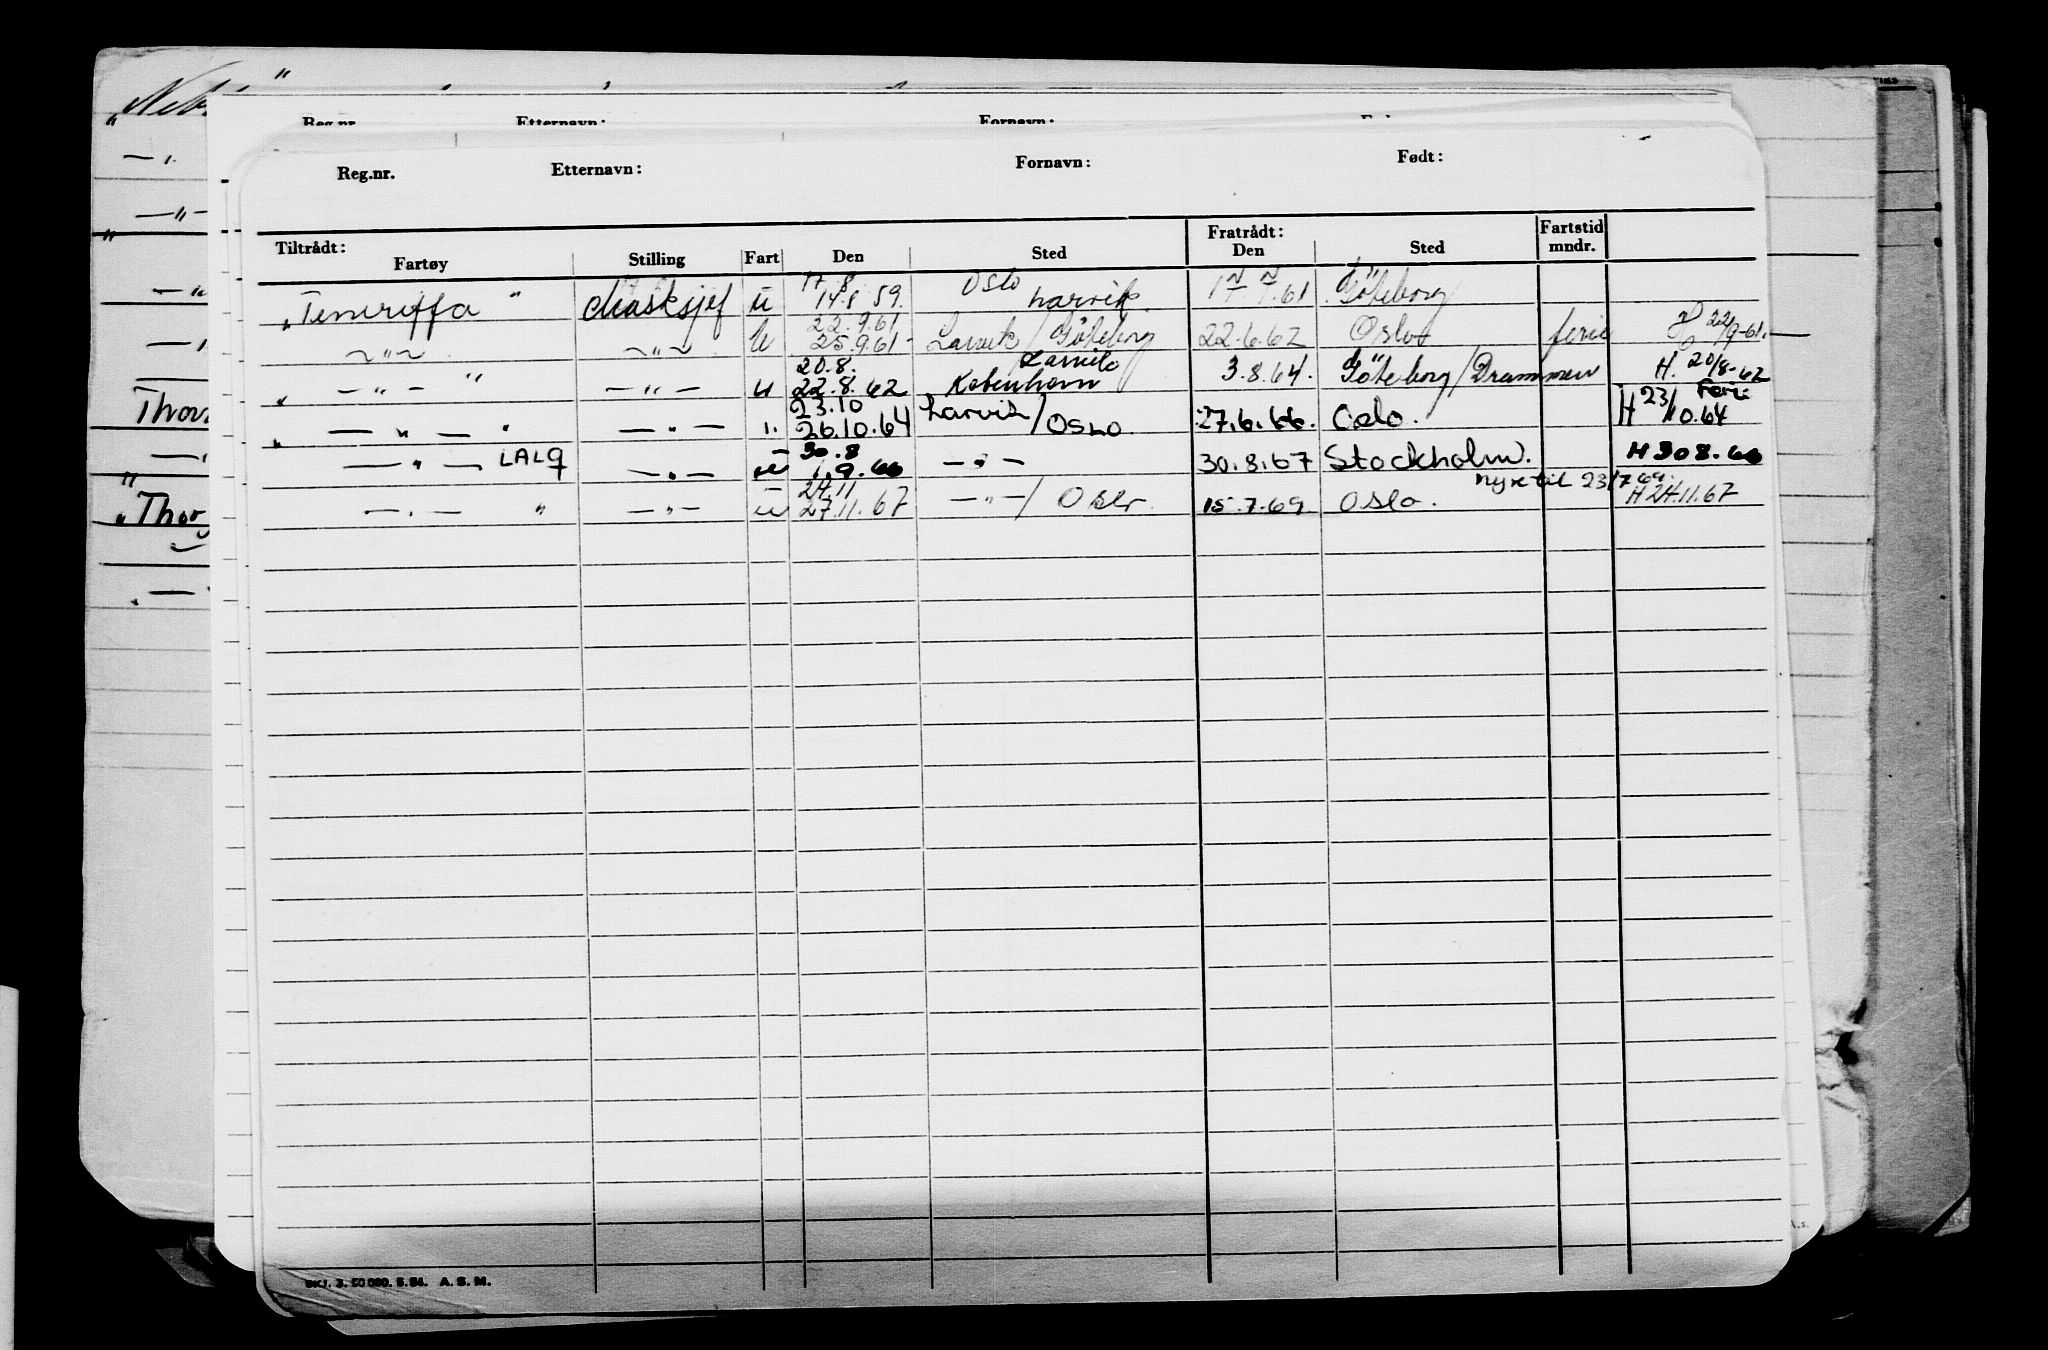 Reg.nr. Etternavn: Fornavn:
Reg.nr. Etternavn: Fornavn: Født:
Tiltrådt: Fratrådt: Fartstid
Fartøy Stilling Fart Den Sted Den Sted mndr.
17.8 Oslo
„Teneriffa" Masksjef u 14.8 59. Larvik .61 Göteborg
22.9.61
—"— —"— u 25.9.61 Larvik / Göteborg 22.6.62 Oslo ferie H 22/9-61.
20.8. Larvik
„ —"— " —"— u 22.8.62 København 3.8.64. Göteborg/Drammen H. 20/8-62
23.10 Ferie
„ —"— " —"— 26.10.64 Larvik/Oslo 27.6.66. Oslo. H 23/10.64
30.8
—"— LALQ —"— u 1.9.66 —"— 30.8.67 Stockholm. H 30 8.66
24.11 nyre til 23/7 69.
—"— " —"— u 27.11.67 —"—/ Oslo 15.7.69 Oslo. H 24.11.67
Thor
„Thor
3. 50 000. 5.54. A. S. M.